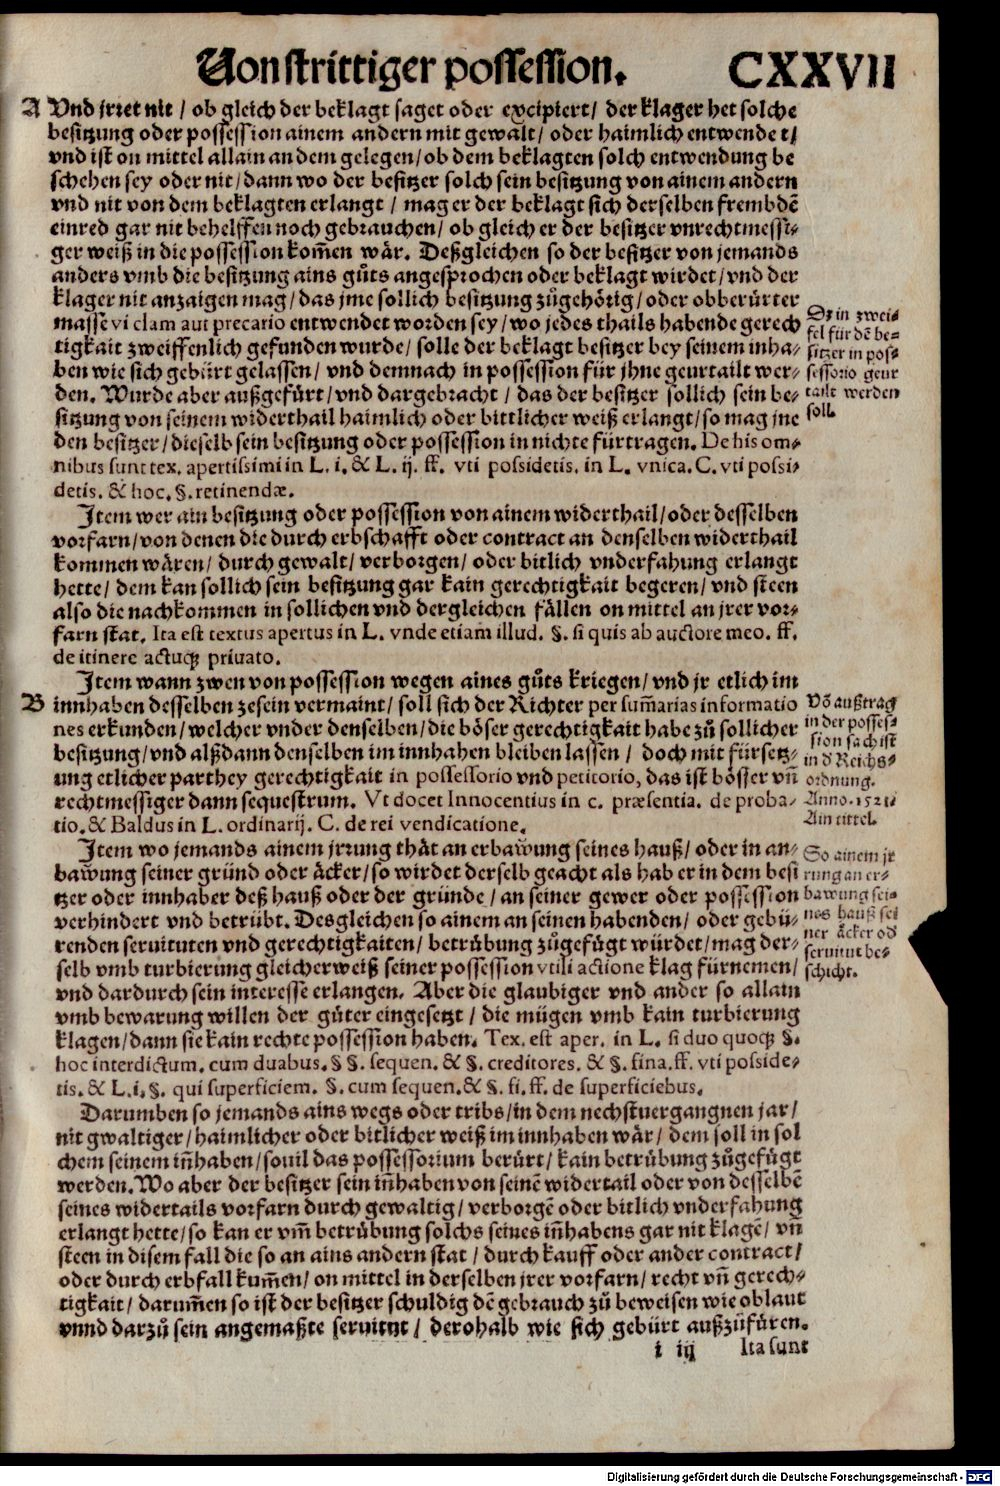 Von strittiger possession. CXXVII
A Vnd jrret nit / ob gleich der beklagt saget oder excipiert / der klager het solche
besitzung oder possession ainem andern mit gewalt / oder haimlich entwende t /
vnd ist on mittel allain an dem gelegen / ob dem beklagten solch entwendung be
schehen sey oder nit / dann wo der besitzer solch sein besitzung von ainem andern
vnd nit von dem beklagten erlangt / mag er der beklagt sich derselben frembdē
einred gar nit behelffen noch gebrauchen / ob gleich er der besitzer vnrechtmessi-
ger weiß in die possession kom̄en wär. Deßgleichen so der besitzer von jemands
anders vmb die besitzung ains gůts angesprochen oder beklagt wirdet / vnd der
klager nit anzaigen mag / das jme sollich besitzung zůgehörig / oder obberürter
masse vi clam aut precario entwendet worden sey / wo jedes thails habende gerech
tigkait zweiffenlich gefunden wurde / solle der beklagt besitzer bey seinem inha-
ben wie sich gebürt gelassen / vnd demnach in possession für jhne geurtailt wer-
den. Wurde aber außgefürt / vnd dargebracht / das der besitzer sollich sein be-
sitzung von seinem widerthail haimlich oder bittlicher weiß erlangt / so mag jne
den besitzer / dieselb sein besitzung oder possession in nichte fürtragen. De his om-
nibus sunt tex. apertissimi in L. i. & L. ij. ff. vti possidetis. in L. vnica. C. vti possi-
detis. & hoc. §. retinendæ.
Dz in zwei-
fel für dē be-
sitzer in pos-
sessorio geur
tailt werden
soll.
Item wer ain besitzung oder possession von ainem widerthail / oder desselben
vorfarn / von denen die durch erbschafft oder contract an denselben widerthail
kommen wären / durch gewalt / verborgen / oder bitlich vnderfahung erlangt
hette / dem kan sollich sein besitzung gar kain gerechtigkait begeren / vnd steen
also die nachkommen in sollichen vnd dergleichen fällen on mittel an jrer vor-
farn stat. Ita est textus apertus in L. vnde etiam illud. §. si quis ab auctore meo. ff.
de itinere actuqꝫ priuato.
Item wann zwen von possession wegen aines gůts kriegen / vnd jr etlich im
B innhaben desselben zesein vermaint / soll sich der Richter per sum̄arias informatio
nes erkunden / welcher vnder denselben / die böser gerechtigkait habe zů sollicher
besitzung / vnd alßdann denselben im innhahen bleiben lassen / doch mit fürsetz-
ung etlicher parthey gerechtigkait in possessorio vnd petitorio, das ist bösser vn̄
rechtmessiger dann sequestrum. Vt docet Innocentius in c. præsentia. de proba-
tio. & Baldus in L. ordinarij. C. de rei vendicatione.
Vō außtrag
in der posses-
sion sach ist
in d Reichs-
ordnung.
Anno. 1521.
Ain tittel.
Item wo jemands ainem jrrung thät an erbawung seines hauß / oder in an-
bawung seiner gründ oder äcker / so wirdet derselb geacht als hab er in dem besi
tzer oder innhaber deß hauß oder der gründe / an seiner gewer oder possession
verhindert vnd betrübt. Desgleichen so ainem an seinen habenden / oder gebü-
renden seruituten vnd gerechtigkaiten / betrübung zůgefügt würdet / mag der-
selb vmb turbierung gleicherweiß seiner possession vtili actione klag fürnemen /
vnd dardurch sein interesse erlangen. Aber die glaubiger vnd ander so allain
vmb bewarung willen der güter eingesetzt / die mügen vmb kain turbierung
klagen / dann sie kain rechte possession haben. Tex. est aper. in L. si duo quoqꝫ §.
hoc interdictum. cum duabus. § §. sequen. & §. creditores. & §. fina. ff. vti posside-
tis. & L. i. §. qui superficiem. §. cum sequen. & §. fi. ff. de superficiebus.
So ainem jr
rung an er-
bawung sei-
nes hauß sei
ner äcker od
seruitut be-
schicht.
Darumben so jemands ains wegs oder tribs / in dem nechstuergangnen jar /
nit gwaltiger / haimlicher oder bitlicher weiß im innhaben wär / dem soll in sol
chem seinem in̄haben / souil das possessorium berürt / kain betrübung zůgefügt
werden. Wo aber der besitzer sein in̄haben von seinē widertail oder von desselbē
seines widertails vorfarn durch gewaltig / verborgē oder bitlich vnderfahung
erlangt hette / so kan er vm̄ betrübung solchs seines in̄habens gar nit klagē / vn̄
steen in disem fall die so an ains andern stat / durch kauff oder ander contract /
oder durch erbfall kum̄en / on mittel in derselben jrer vorfarn / recht vn̄ gerech-
tigkait / darum̄en so ist der besitzer schuldig dē gebrauch zů beweisen wie oblaut
vnnd darzů sein angemaßte seruitut / derohalb wie sich gebürt außzůfüren.
i iij Ita sunt
Digitalisierung gefördert durch die Deutsche Forschungsgemeinschaft - DFG